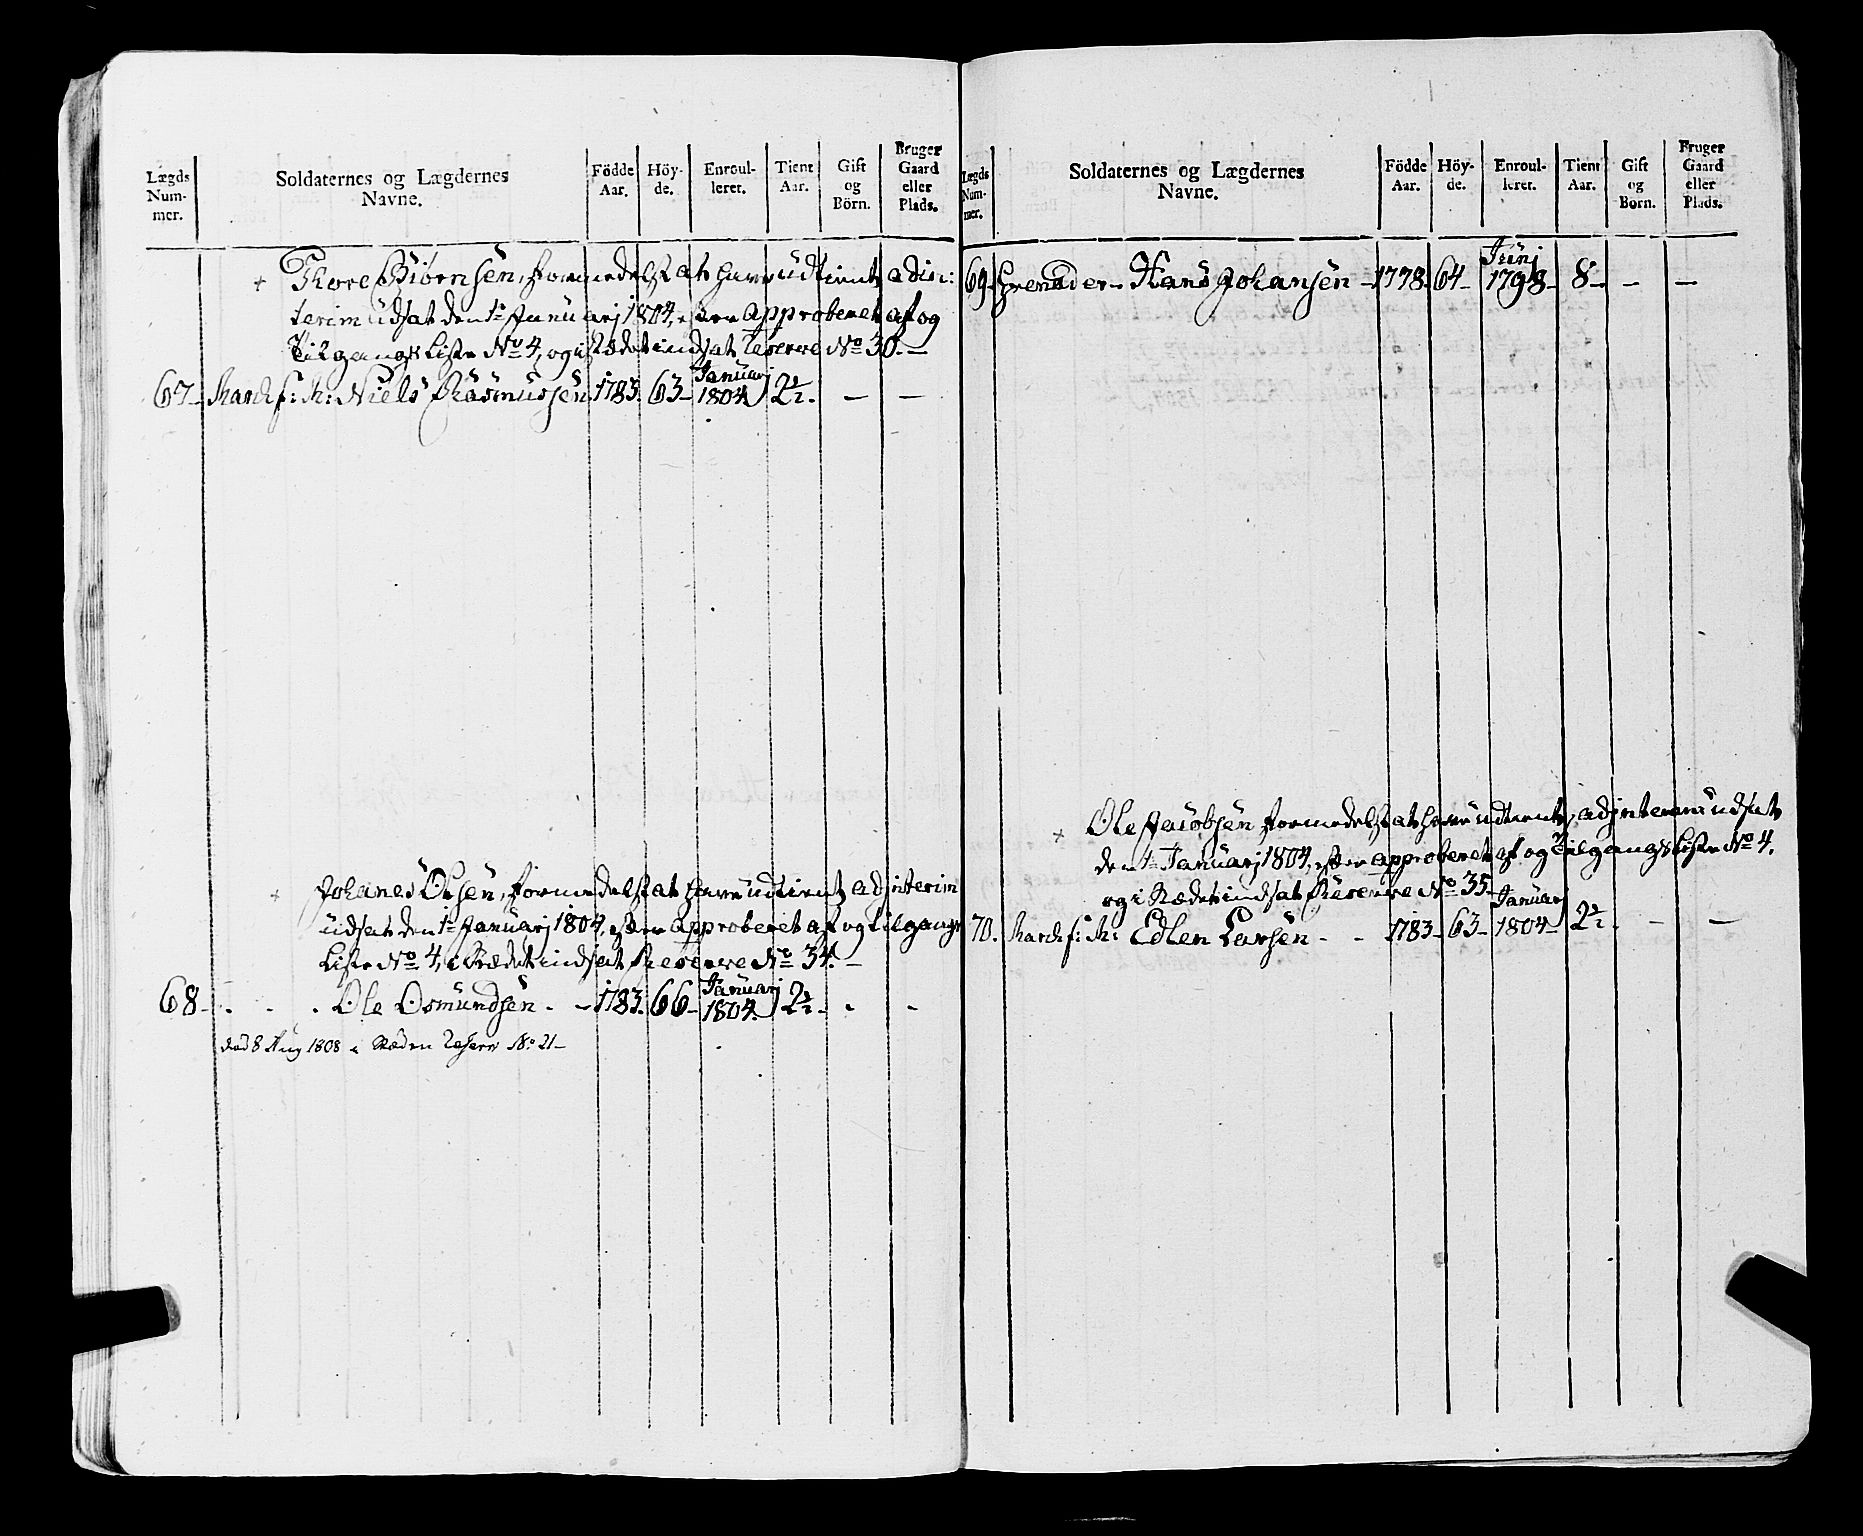 Lægds Num- mer. | Soldaternes og Lægdernes Navne. | Födde Aar. | Höy- de. | Enroul- leret. | Tient Aar. | Gift og Börn. | Bruger Gaard eller Plads.
+ Thore Biörnsen, formedelst at have udtient, adin:
terim udsat den 1te Januarj 1804, efter approberet af og
Tilgangs Liste No 4, og i stædet indsat Reserve No 30. —
67 – Musk: Niels Rasmussen 1783. 63 – Januarj 1804. 2½. — —
+ Johanes Olsen, formedelst at have udtient adinterim
udsat den 1te Januarj 1804, efter approberet af og tilgangs
Liste No 4, i stædet indsat Reserve No 34. —
68 – . . . Ole Osmundsen . – 1783. 66 – Januarj 1804. 2½. . -
død 8 Aug 1808 i Stæden Reserv No 21 –
Lægds Num- mer. | Soldaternes og Lægdernes Navne. | Födde Aar. | Höy- de. | Enroul- leret. | Tient Aar. | Gift og Börn. | Bruger Gaard eller Plads.
69. Grenader – Hans Johansen – 1778. 64 – Junj 1798 – 8 – — —
+ Ole Jacobsen formedelst at have udtient, adjnterim udsat
den 1te Januarj 1804, efter approberet af og Tilgangs Liste No 4.
og i Stædet indsat Reserve No 35 –
70. Edlen Larsen - - 1783 – 63 – Januarj 1804 – 2½. — —